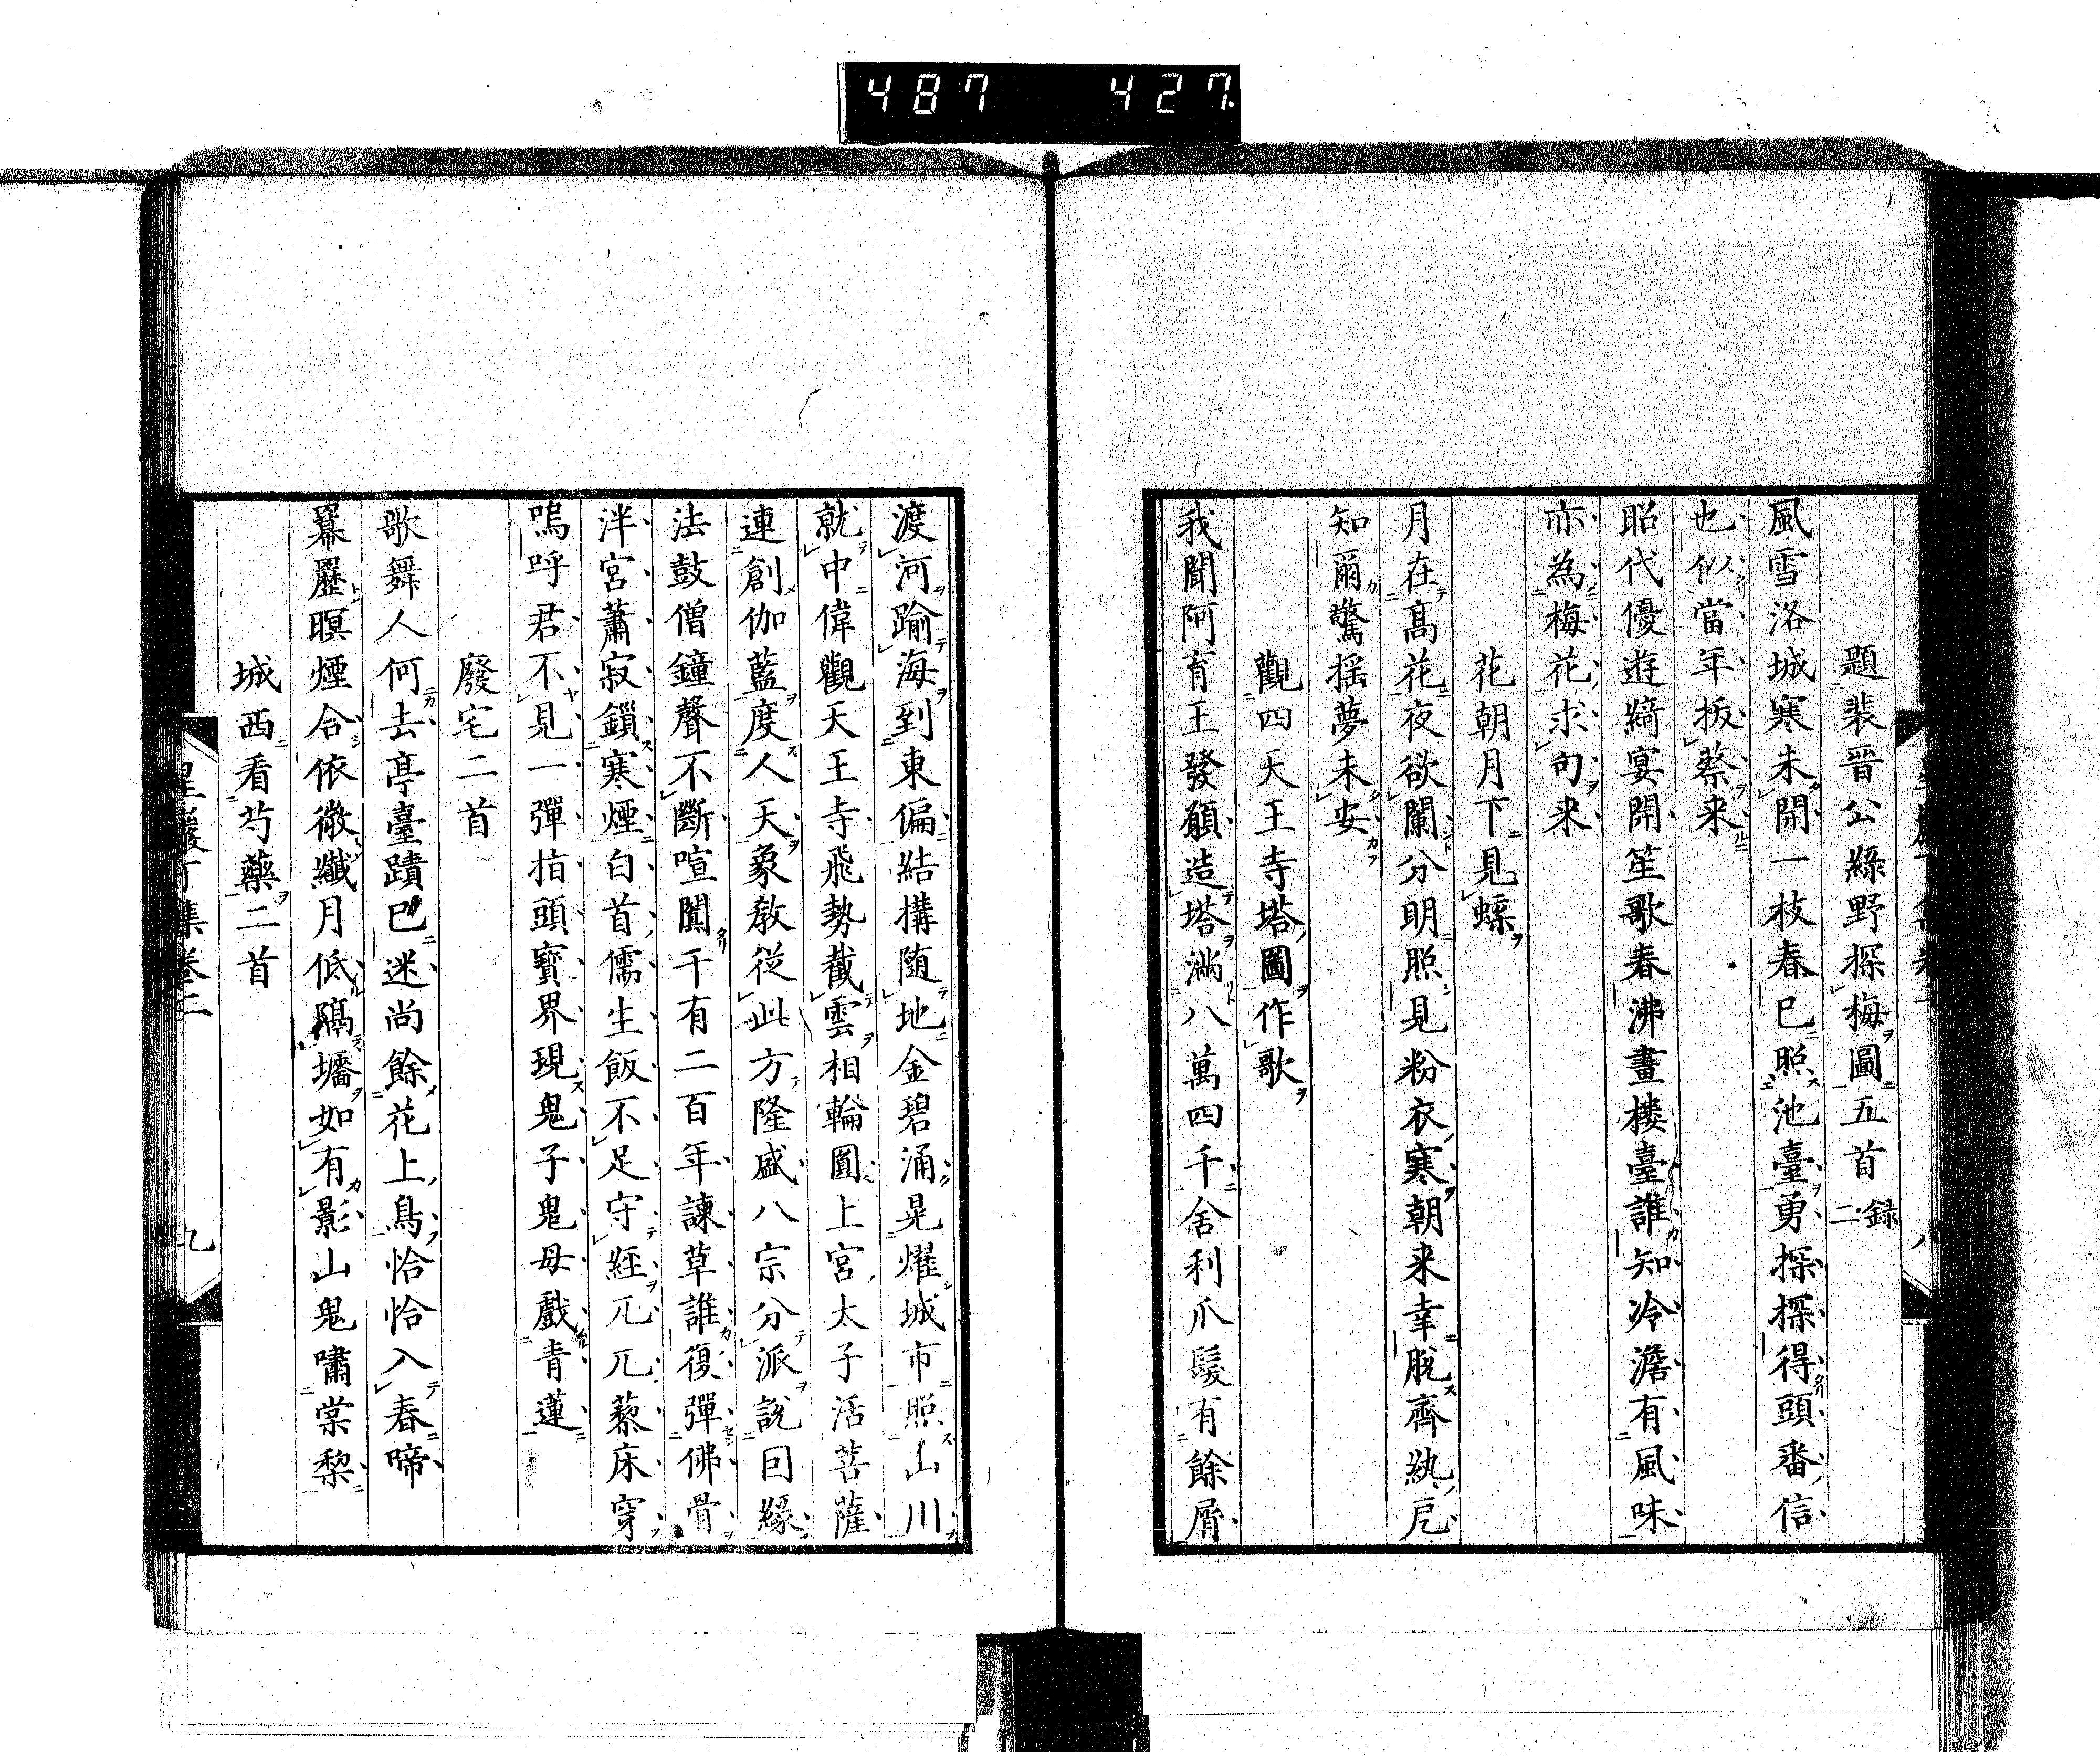 487 427.
題裴晉公綠野探梅圖五首 録二
風雪洛城寒未開一枝春已照池臺勇探探得頭番信
也似當年扳蔡来
昭代優遊綺宴開笙歌春沸畫樓臺誰知冷澹有風味
亦為梅花求句来
花朝月下見蝶
月在高花夜欲闌分明照見粉衣寒朝来幸脫齊紈厄
知爾驚揺夢未安
觀四天王寺塔圖作歌
我聞阿育王發願造塔滿八萬四千舍利爪髮有餘屑
渡河踰海到東偏結構随地金碧涌晃燿城市照山川
就中偉觀天王寺飛勢截雲相輪圓上宮太子活菩薩
連創伽藍度人天象教從此方隆盛八宗分派説因緣
法鼓僧鐘聲不斷喧闐千有二百年諫草誰復彈佛骨
泮宮蕭寂鎖寒煙白首儒生飯不足守經兀兀藜床穿
嗚呼君不見一彈指頭寶界現鬼子鬼母戲青蓮
廢宅二首
歌舞人何去亭臺蹟已迷尚餘花上鳥恰恰入春啼
羃歷暝煙合依微纖月低隔墻如有影山鬼嘯棠梨
城西看芍藥二首
星巖丁集卷二
九